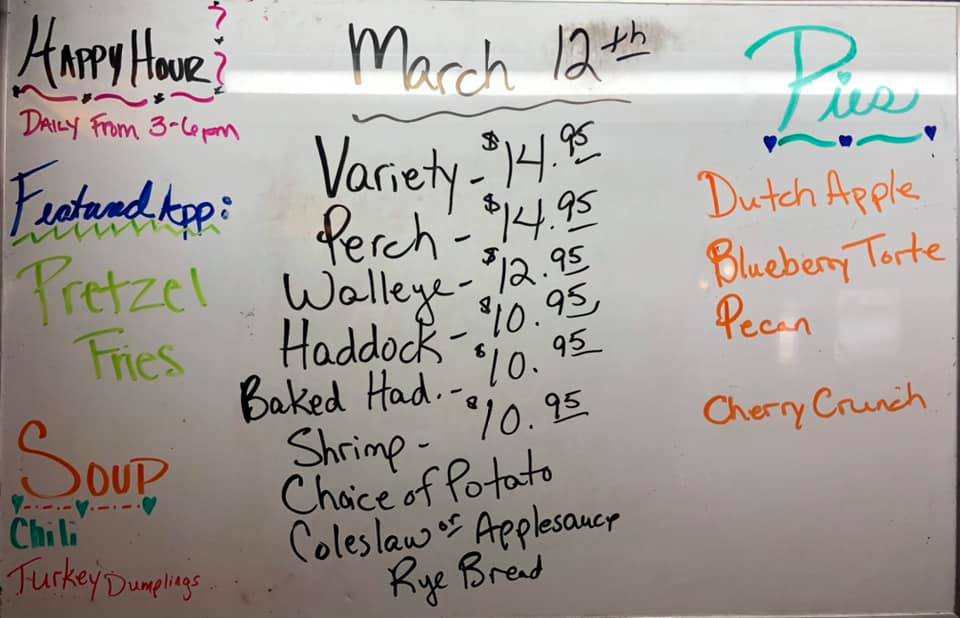 HAPPY HOUR
DAILY From 3-6pm
Featured App:
Pretzel
Fries
SOUP
Chili
Turkey Dumplings
March 12th
Variety - $14.95
Perch - $14.95
Walleye - $12.95
Haddock - $10.95
Baked Had. - $10.95
Shrimp - $10.95
Choice of Potato
Coleslaw or Applesauce
Rye Bread
Pies
Dutch Apple
Blueberry Torte
Pecan
Cherry Crunch